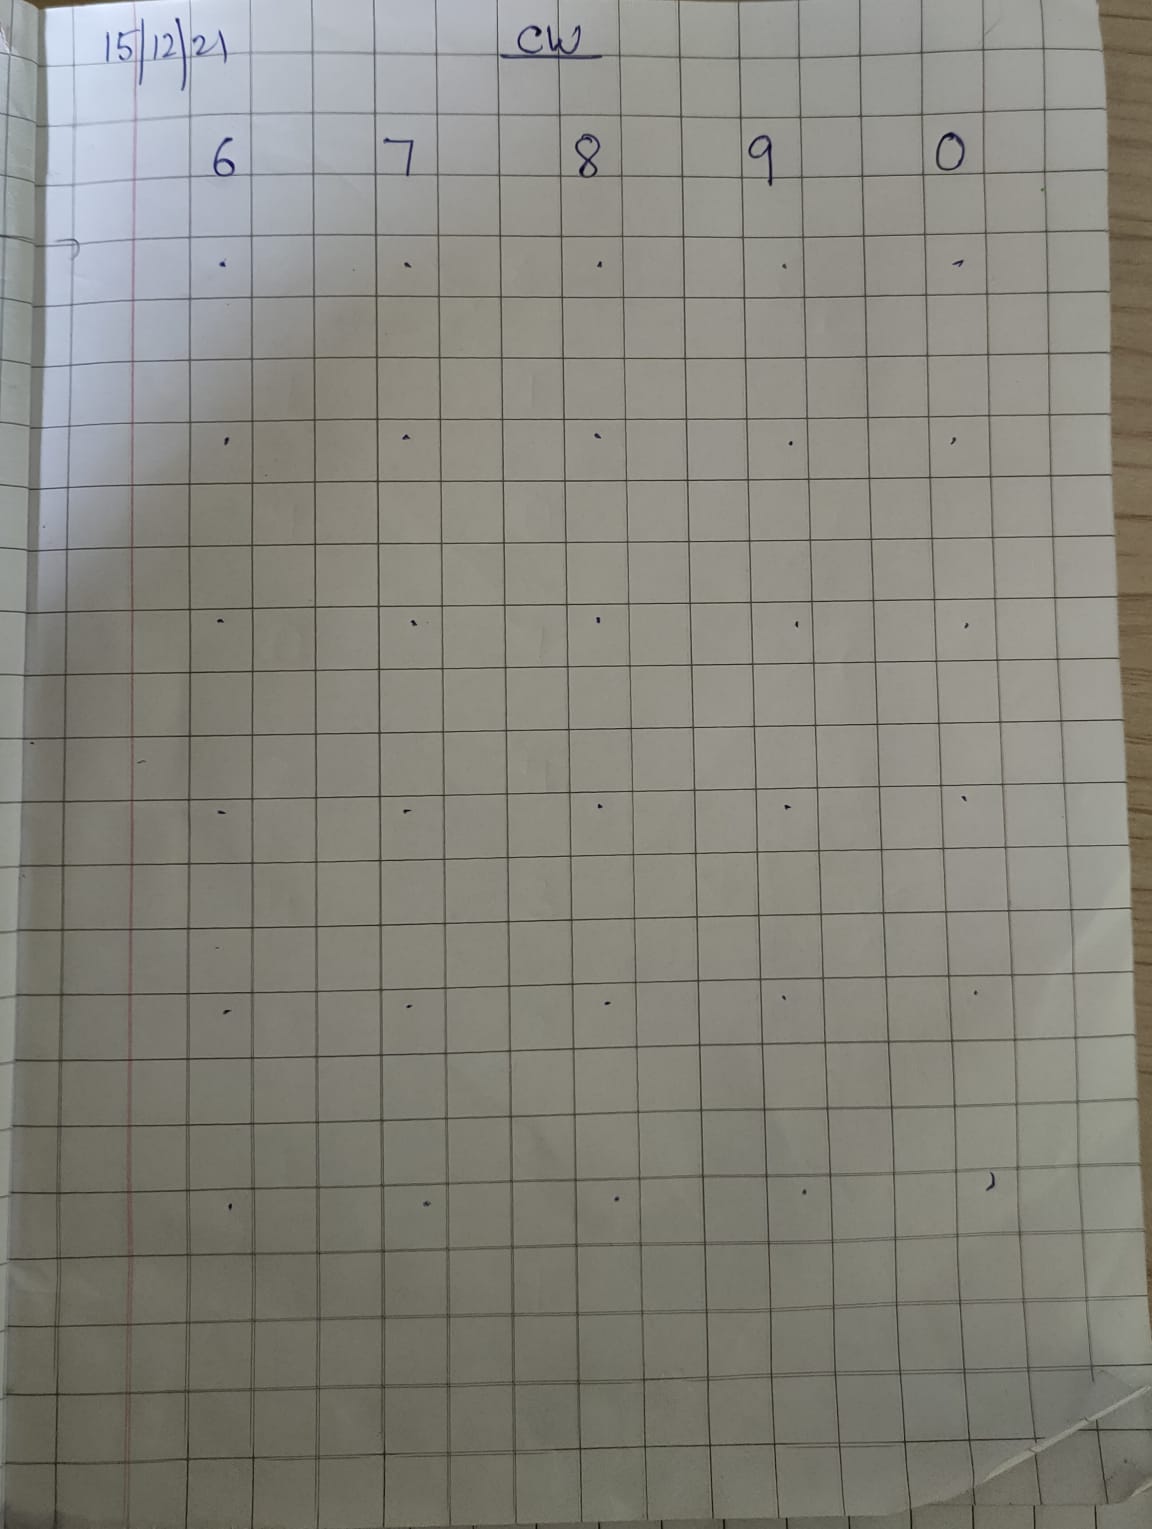 15/12/21 CW
6 7 8 9 0